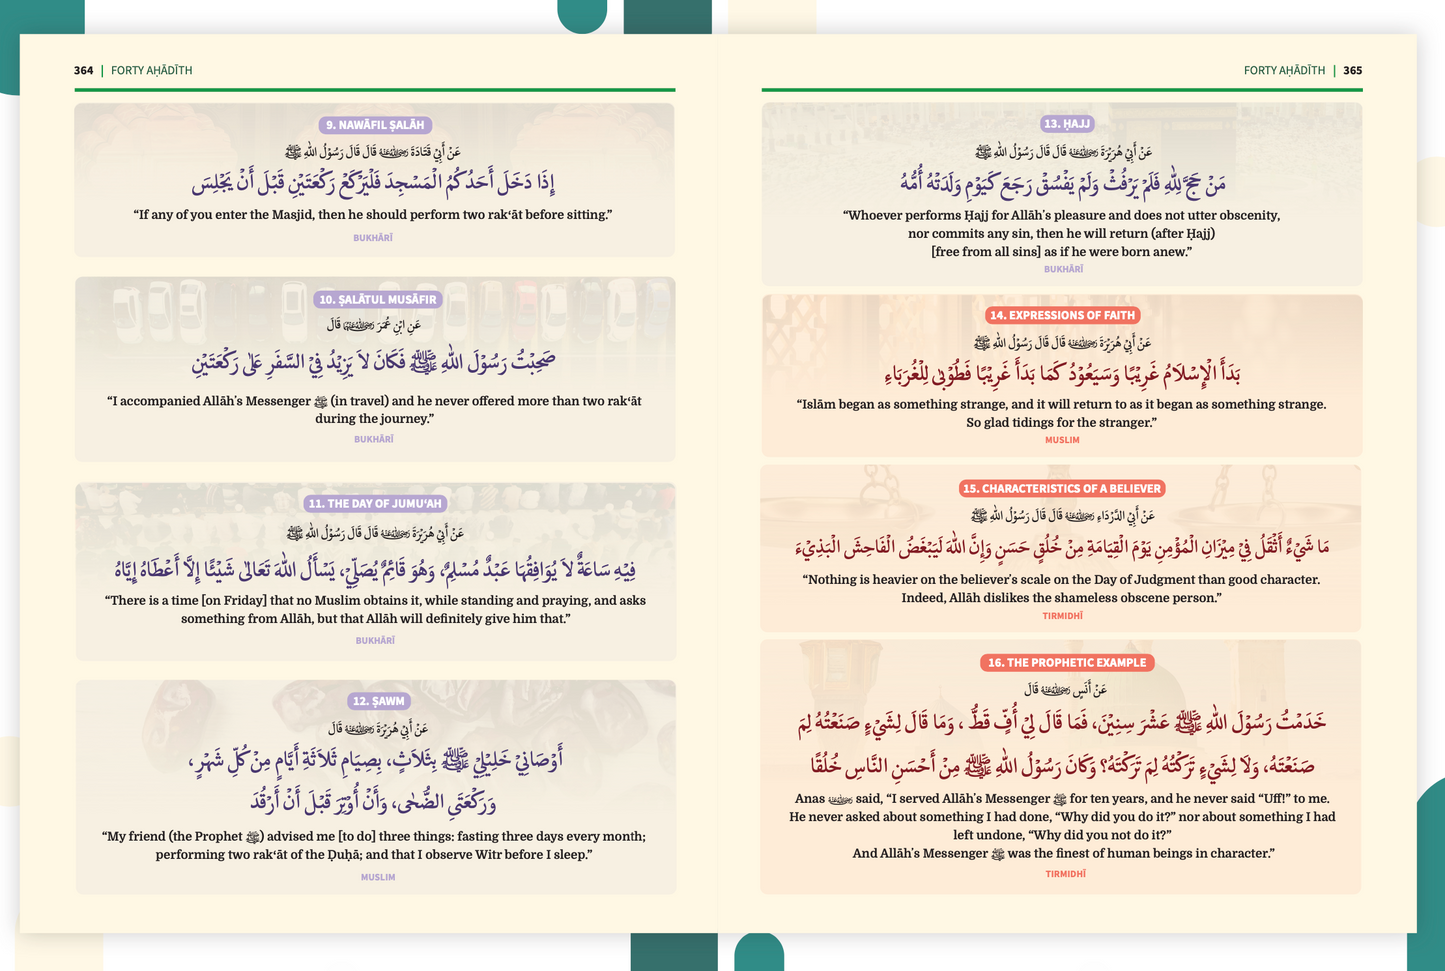 364 | FORTY AḤĀDĪTH
9. NAWĀFIL ṢALĀH
عَنْ أَبِيْ قَتَادَةَ ؓ قَالَ قَالَ رَسُوْلُ اللهِ ﷺ
إِذَا دَخَلَ أَحَدُكُمُ الْمَسْجِدَ فَلْيَرْكَعْ رَكْعَتَيْنِ قَبْلَ أَنْ يَجْلِسَ
“If any of you enter the Masjid, then he should perform two rakʿāt before sitting.”
BUKHĀRĪ
10. ṢALĀTUL MUSĀFIR
عَنِ ابْنِ عُمَرَ ؓ قَالَ
صَحِبْتُ رَسُوْلَ اللهِ ﷺ فَكَانَ لاَ يَزِيْدُ فِيْ السَّفَرِ عَلٰى رَكْعَتَيْنِ
“I accompanied Allāh’s Messenger ﷺ (in travel) and he never offered more than two rakʿāt
during the journey.”
BUKHĀRĪ
11. THE DAY OF JUMUʿAH
عَنْ أَبِيْ هُرَيْرَةَ ؓ قَالَ قَالَ رَسُوْلُ اللهِ ﷺ
فِيْهِ سَاعَةٌ لاَ يُوَافِقُهَا عَبْدٌ مُسْلِمٌ، وَهُوَ قَائِمٌ يُصَلِّيْ، يَسْأَلُ اللهَ تَعَالٰى شَيْئًا إِلَّا أَعْطَاهُ إِيَّاهُ
“There is a time [on Friday] that no Muslim obtains it, while standing and praying, and asks
something from Allāh, but that Allāh will definitely give him that.”
BUKHĀRĪ
12. ṢAWM
عَنْ أَبِيْ هُرَيْرَةَ ؓ قَالَ
أَوْصَانِيْ خَلِيْلِيْ ﷺ بِثَلَاثٍ، بِصِيَامِ ثَلَاثَةِ أَيَّامٍ مِنْ كُلِّ شَهْرٍ،
وَرَكْعَتَيِ الضُّحٰى، وَأَنْ أُوْتِرَ قَبْلَ أَنْ أَرْقُدَ
“My friend (the Prophet ﷺ) advised me [to do] three things: fasting three days every month;
performing two rakʿāt of the Ḍuḥā; and that I observe Witr before I sleep.”
MUSLIM
FORTY AḤĀDĪTH | 365
13. ḤAJJ
عَنْ أَبِيْ هُرَيْرَةَ ؓ قَالَ قَالَ رَسُوْلُ اللهِ ﷺ
مَنْ حَجَّ لِلّٰهِ فَلَمْ يَرْفُثْ وَلَمْ يَفْسُقْ رَجَعَ كَيَوْمِ وَلَدَتْهُ أُمُّهُ
“Whoever performs Ḥajj for Allāh’s pleasure and does not utter obscenity,
nor commits any sin, then he will return (after Ḥajj)
[free from all sins] as if he were born anew.”
BUKHĀRĪ
14. EXPRESSIONS OF FAITH
عَنْ أَبِيْ هُرَيْرَةَ ؓ قَالَ قَالَ رَسُوْلُ اللهِ ﷺ
بَدَأَ الْإِسْلَامُ غَرِيْبًا وَسَيَعُوْدُ كَمَا بَدَأَ غَرِيْبًا فَطُوْبٰى لِلْغُرَبَاءِ
“Islām began as something strange, and it will return to as it began as something strange.
So glad tidings for the stranger.”
MUSLIM
15. CHARACTERISTICS OF A BELIEVER
عَنْ أَبِيْ الدَّرْدَاءِ ؓ قَالَ قَالَ رَسُوْلُ اللهِ ﷺ
مَا شَيْءٌ أَثْقَلُ فِيْ مِيْزَانِ الْمُؤْمِنِ يَوْمَ الْقِيَامَةِ مِنْ خُلُقٍ حَسَنٍ وَإِنَّ اللهَ لَيَبْغَضُ الْفَاحِشَ الْبَذِيْءَ
“Nothing is heavier on the believer’s scale on the Day of Judgment than good character.
Indeed, Allāh dislikes the shameless obscene person.”
TIRMIDHĪ
16. THE PROPHETIC EXAMPLE
عَنْ أَنَسٍ ؓ قَالَ
خَدَمْتُ رَسُوْلَ اللهِ ﷺ عَشْرَ سِنِيْنَ، فَمَا قَالَ لِيْ أُفٍّ قَطُّ ، وَمَا قَالَ لِشَيْءٍ صَنَعْتُهُ لِمَ
صَنَعْتَهُ، وَلَا لِشَيْءٍ تَرَكْتُهُ لِمَ تَرَكْتَهُ؟ وَكَانَ رَسُوْلُ اللهِ ﷺ مِنْ أَحْسَنِ النَّاسِ خُلُقًا
Anas ؓ said, “I served Allāh’s Messenger ﷺ for ten years, and he never said “Uff!” to me.
He never asked about something I had done, “Why did you do it?” nor about something I had
left undone, “Why did you not do it?”
And Allāh’s Messenger ﷺ was the finest of human beings in character.”
TIRMIDHĪ